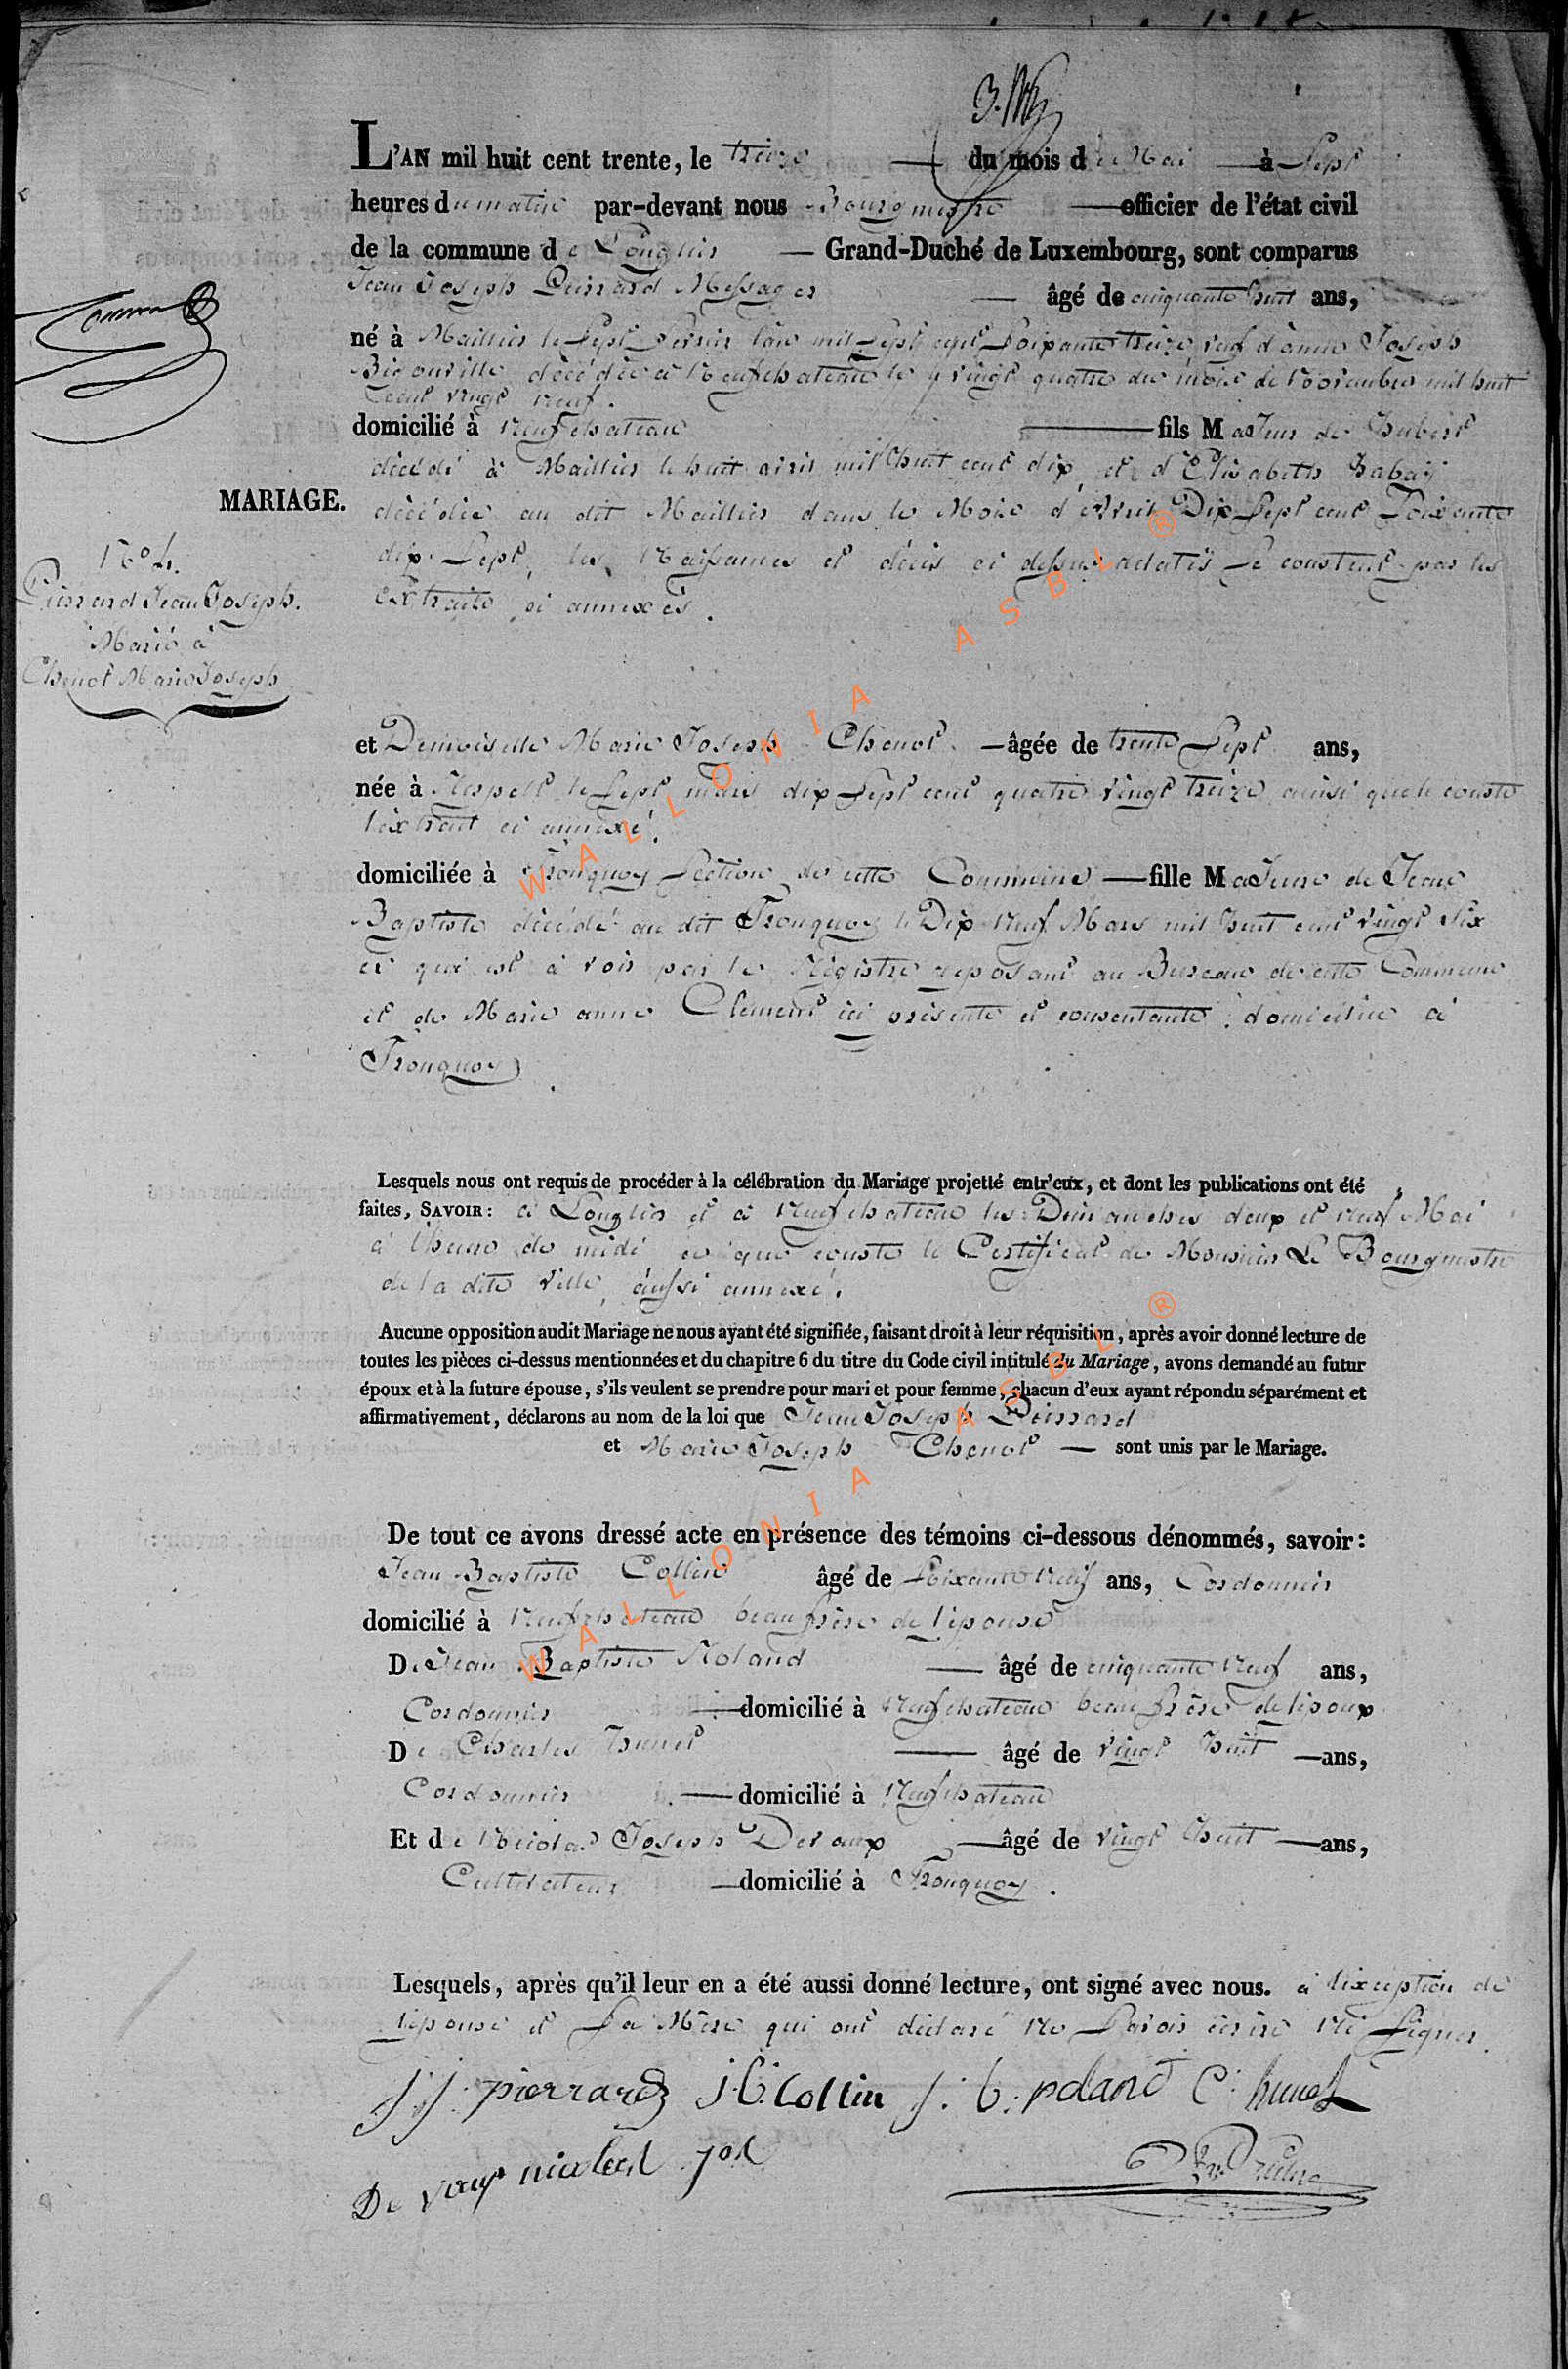 3.
L'AN mil huit cent trente, le treize du mois de Mai à Sept
heures du matin par-devant nous Bourgmestre officier de l'état civil
de la commune de Longlier Grand-Duché de Luxembourg, sont comparus
Jean Joseph Pierrard Messager âgé de cinquante huit ans,
né à Maillier le Sept l'an mil Sept cent Soixante treize, veuf d'anne Joseph
décédée à Neufchateau le vingt quatre du mois de Novembre mil huit
cent vingt neuf.
domicilié à Neufchateau fils Majeur de Hubert
décédé à Maillier le huit avril mil huit cent dix, et d'Elisabeth Habay
MARIAGE.
décédée au dit Maillier dans le Mois d'Avril Dix Sept cent Soixante
dix Sept, les Naissances et décès ci dessus relatés se constent par les
extraits ci annexés.
N° 4.
Pierrard Jean Joseph.
Marié à
Chenot Marie Joseph
et Demoiselle Marie Joseph Chenot âgée de trente Sept ans,
née à le Sept mars dix Sept cent quatre vingt treize ainsi que le conste
l'extrait ci annexé.
domiciliée à Tronquoy Section de cette Commune fille Majeure de Jean
Baptiste décédé au dit Tronquoy le Dix Neuf Mars mil huit cent vingt Six
ce qui est à voir par le Régistre reposant au Bureau de cette Commune
et de Marie anne Clement ici présente et consentante, domiciliée à
Tronquoy.
Lesquels nous ont requis de procéder à la célébration du Mariage projetté entr'eux, et dont les publications ont été
faites, SAVOIR: à Longlier et à Neufchateau les Dimanches deux et neuf Mai
à l'heure de midi ce que conste le Certificat de Monsieur Le Bourgmestre
de la dite ville, aussi annexé.
Aucune opposition audit Mariage ne nous ayant été signifiée, faisant droit à leur réquisition, après avoir donné lecture de
toutes les pièces ci-dessus mentionnées et du chapitre 6 du titre du Code civil intitulé du Mariage, avons demandé au futur
époux et à la future épouse, s'ils veulent se prendre pour mari et pour femme, chacun d'eux ayant répondu séparément et
affirmativement, déclarons au nom de la loi que Jean Joseph Pierrard
et Marie Joseph Chenot sont unis par le Mariage.
De tout ce avons dressé acte en présence des témoins ci-dessous dénommés, savoir:
Jean Baptiste Collin âgé de Soixante Neuf ans, Cordonnier
domicilié à Neufchateau beau frère de l'épouse
De Jean Baptiste Roland âgé de cinquante Neuf ans,
Cordonnier domicilié à Neufchateau beau frère de l'époux
De Charles Hunet âgé de vingt huit ans,
Cordonnier domicilié à Neufchateau
Et de Nicolas Joseph Devaux âgé de vingt huit ans,
Cultivateur domicilié à Tronquoy.
Lesquels, après qu'il leur en a été aussi donné lecture, ont signé avec nous. à l'exception de
l'épouse et Sa Mère qui ont déclaré Ne Savoir écrire Ni Signer.
j. j. pierrard j. b. Collin j. b. roland C. hunet
De vaux nicolas jos
WALLONIA ASBL ®
WALLONIA ASBL ®